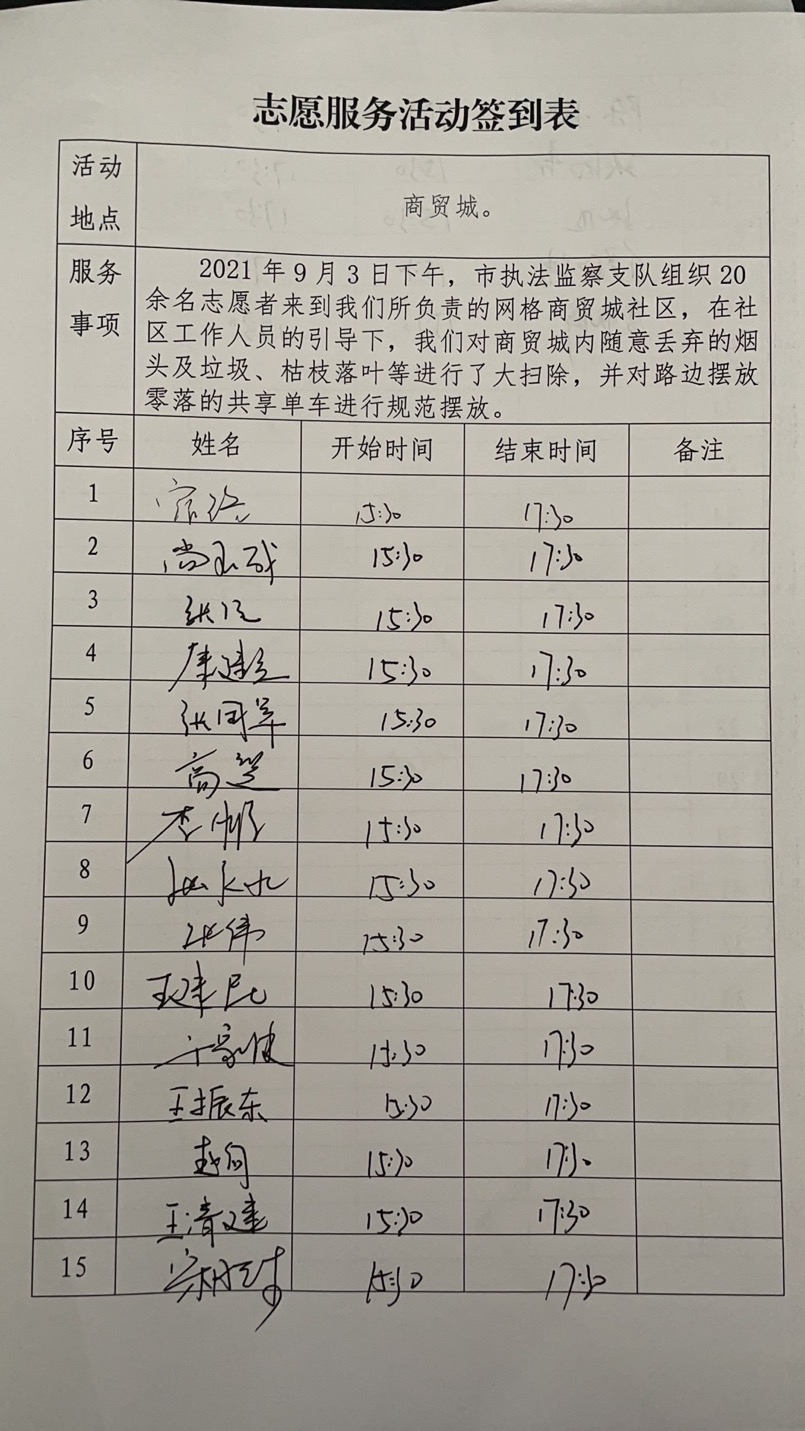 志愿服务活动签到表
活动地点 商贸城。
服务事项
2021年9月3日下午，市执法监察支队组织20
余名志愿者来到我们所负责的网格商贸城社区，在社
区工作人员的引导下，我们对商贸城内随意丢弃的烟
头及垃圾、枯枝落叶等进行了大扫除，并对路边摆放
零落的共享单车进行规范摆放。
序号 姓名 开始时间 结束时间 备注
1 15:30 17:30
2 15:30 17:30
3 15:30 17:30
4 15:30 17:30
5 张国军 15:30 17:30
6 15:30 17:30
7 15:30 17:30
8 15:30 17:30
9 张伟 15:30 17:30
10 王建民 15:30 17:30
11 15:30 17:30
12 王振东 15:30 17:30
13 15:30 17:30
14 王清建 15:30 17:30
15 15:30 17:30